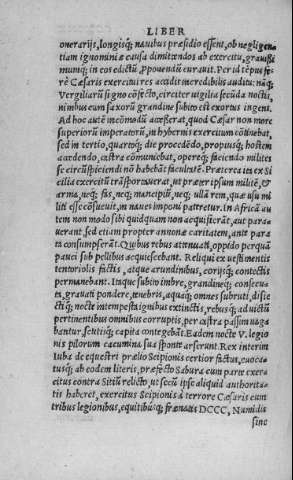 LIBER
onerarijs, longisq́; nauibus præsidio essent, ob negligen
tiam ignominiæ causa dimittendos ab exercitu, grauissi
mumq́; in eos edictū ꝓponendū curauit. Per id tēpus fe
rè Cæsaris exercitui res accidit incredibilis auditu: nāq́;
Vergiliarū signo cōfecto, circiter uigilia secūda noctis,
nimbus cum saxorū grandine subito est exortus ingens.
Ad hoc autē incōmodū accesserat, quod Cæsar non more
superiorū imperatorū, in hybernis exercitum cōtinebat,
sed in tertio, quartoq́; die procedēdo, propiusq́; hostem
accedendo, castra cōmuniebat, opereq́; faciendo milites
se circūspiciendi nō habebāt facultatē. Præterea ita ex Si
cilia exercitū trāsportauerat, ut præter ipsum militē, &
arma, neq́; uas, neq́; mancipiū, neq́; ullā rem, quæ usu mi
liti esse cōsueuit, in naues imponi pateretur. In Africa au
tem non modo sibi quidquam non acquisierāt, aut para
uerant, sed etiam propter annonæ caritatem, ante para
ta consumpserāt. Quibus rebus attenuati, oppidò perquā
pauci sub pellibus acquiescebant. Reliqui ex uestimentis
tentoriolis factis, atque arundinibus, corijsq́; contectis
permanebant. Itaque subito imbre, grandineq́; consecu
ta, grauati pondere, tenebris, aquaq́; omnes subruti, disie
ctiq́; nocte intempesta ignibus extinctis, rebusq́; ad uictū
pertinentibus omnibus corruptis, per castra passim uaga
bantur, scutisq́; capita contegebāt. Eadem nocte V. legio
nis pilorum cacumina sua sponte arserunt. Rex interim
Iuba de equestri prælio Scipionis certior factus, euoca-
tusq́; ab eodem literis, præfecto Sabura cum parte exer-
citus contra Sitiū relicto, ut secū ipse aliquid authorita-
tis haberet, exercitus Scipionis à terrore Cæsaris cum
tribus legionibus, equitibusq́; frænatis DCCC, Numidis
sine